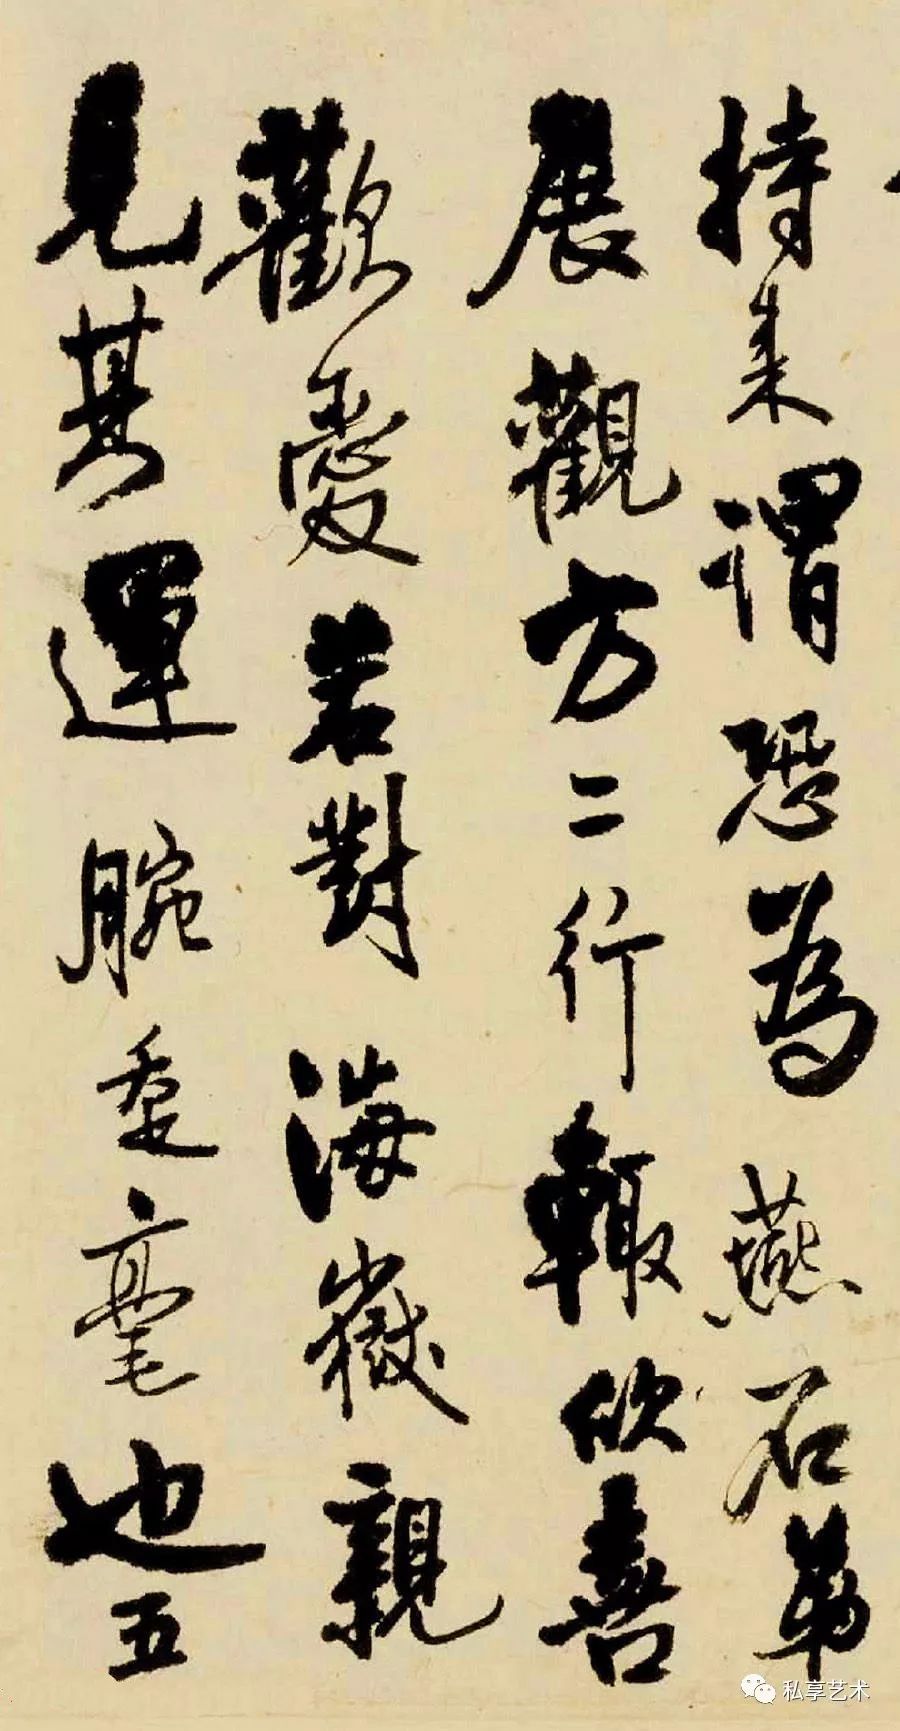 持来謂恐為燕石第
展觀方二行輙欣喜
歡愛若對海嶽親
見其運腕垂毫也五
私享艺术